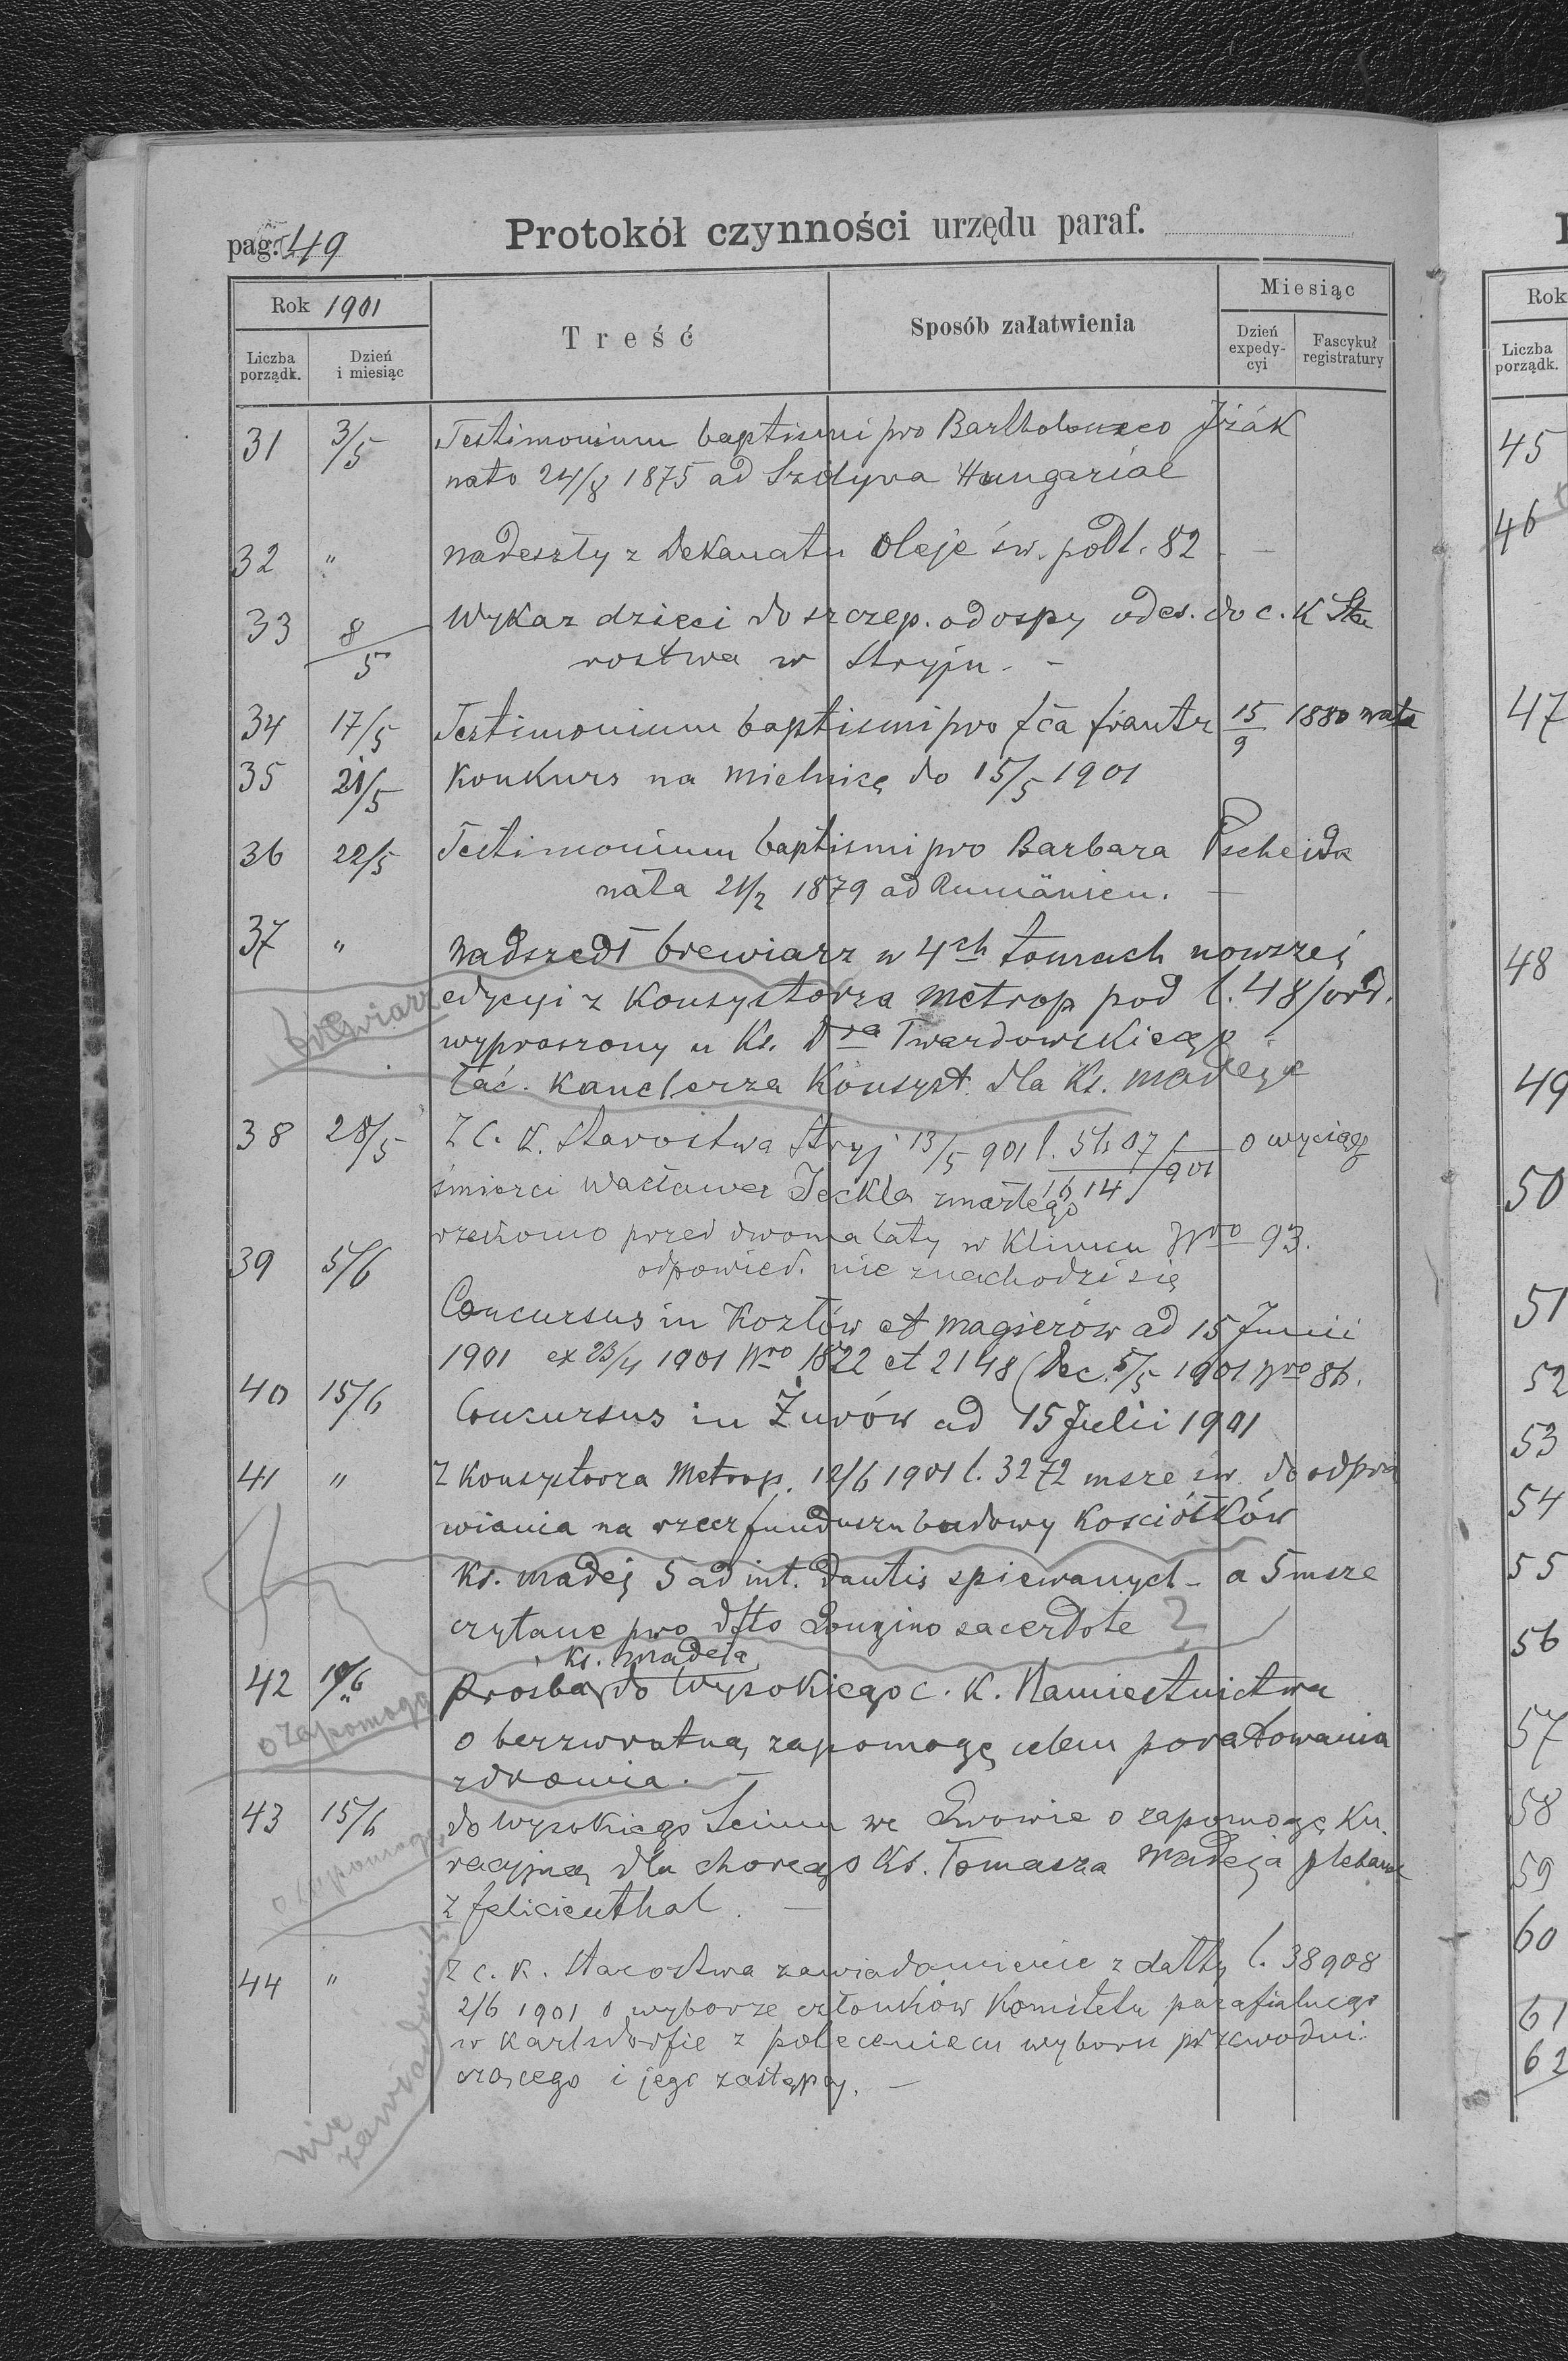 pag. 49 Protokół czynności urzędu paraf.
Rok 1901 Treść Sposób załatwienia Miesiąc
Liczba porządk. Dzień i miesiąc Dzień expedycyi Fascykuł registratury
31 3/5 Testimonium baptismi pro Bartholomeo Jžák
nato 24/8 1875 ad Hungariae
32 " nadeszły z Dekanatu Oleje św. pod l. 82 -
33 8/5 Wykaz dzieci do szczep. od ospy odes. do c. K Sta
rostwa w Stryju. -
34 17/5 Testimonium baptismi pro fca frantz 15/9 1880 nata
35 21/5 Konkurs na Mielnicę do 15/5 1901
36 22/5 Testimonium baptismi pro Barbara Pscheida
nata 21/2 1879 ad Rumänien. -
37 " Nadszedł brewiarz w 4ch tomach nowszej
brewiarz edycyi z Konsystorza Metrop pod l. 48/ord.
wyproszony u Ks. Dra Twardowskiego
łać. Kanclerza Konsyst. dla Ks. Madeja
38 28/5 Z C. K. Starostwa Stryj 13/5 901 l. o wyciąg
śmierci Wacława Jeckla zmarłego
rzekomo przed dwoma laty w Klimcu Nro 93.
odpowied. nie znachodzi się
39 5/6 Concursus in Kozłów et Magierów ad 15 Junii
1901 ex 23/4 1901 Nro 1822 et 2148 (Dec. 5/5 1901 Nro 86.
40 15/6 Concursus in Żurów ad 15 Julii 1901
41 " Z Konsystorza Metrop. 12/6 1901 l. 3272 msze św. do odpra
wiania na rzecz funduszu budowy Kosciołków
Ks. Madej 5 ad int. dantis spiewanych - a 5 msze
czytane pro dfto Longino sacerdote ?
Ks. Madeja
42 Prosba do Wysokiego c. K. Namiestnictwa
o zapomogę o bezzwrotną zapomogę celem poratowania
zdrowia. -
43 15/6 do Wysokiego Seimu we Lwowie o zapomogę Ku.
o zapomogę racyjną dla chorego Ks. Tomasza Madeja plebana
z Felicienthal. -
44 " Z c. K. Starostwa zawiadomienie z datty l. 38908
2/6 1901 o wyborze członków Komitetu parafialnego
w Karlsdorfie z poleceniem wyboru przewodni.
czącego i jego zastępcy. -
nie
Rok
Liczba
porządk.
45
46
47
48
49
50
51
52
53
54
55
56
57
58
59
60
61
62